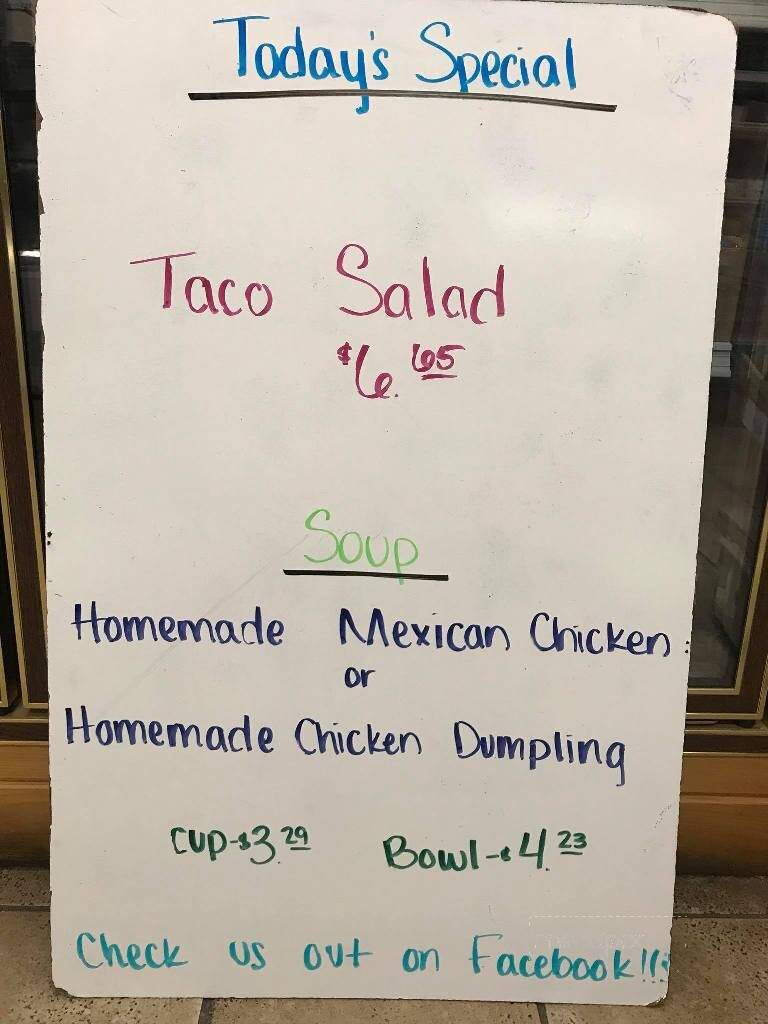 Today's Special
Taco Salad
$6.65
Soup
Homemade Mexican Chicken
or
Homemade Chicken Dumpling
Cup-$3.29 Bowl-$4.23
Check us out on Facebook!!!